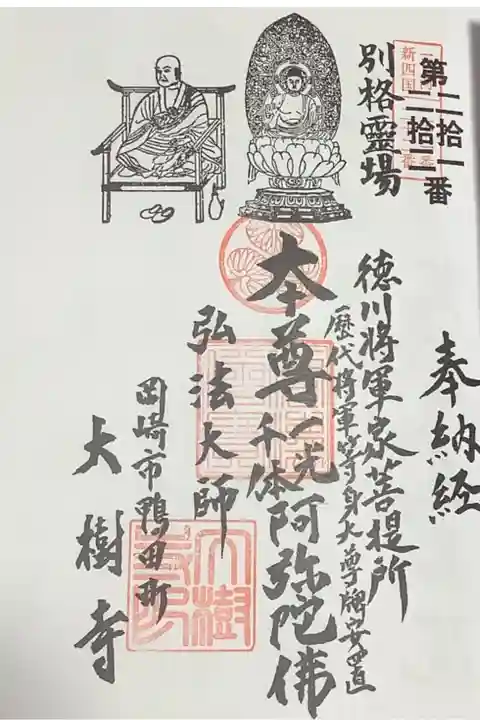 奉納経
別格靈場
徳川将軍家菩提所
歴代将軍等身大尊牌安置
本尊一光千体阿弥陀佛
弘法大師
岡崎市鴨田町
大樹寺
新四国